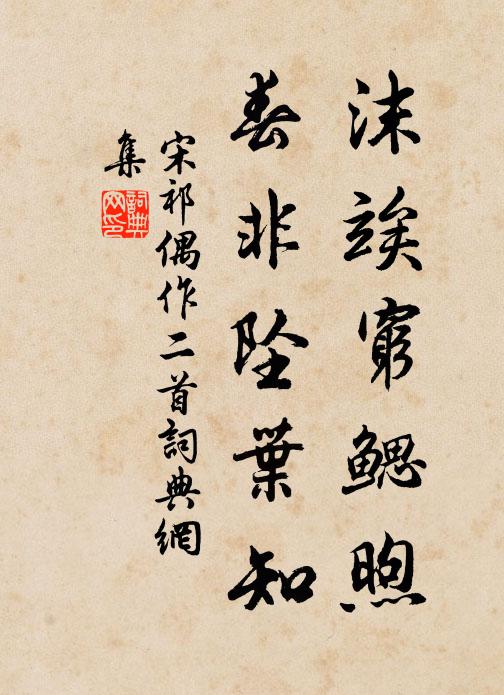 沫竢窮鰓煦
春非墜葉知
宋祁偶作二首詞典網
集
詞典
网印